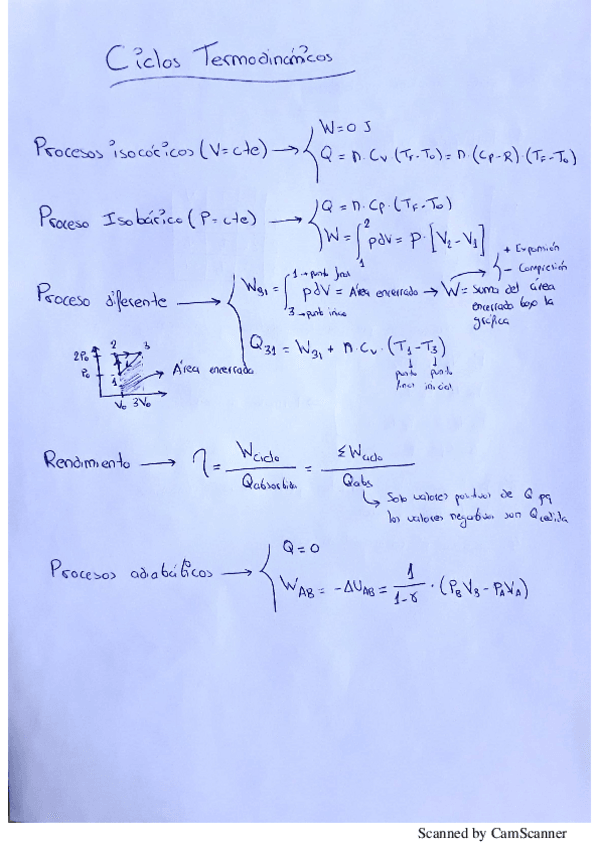 Ciclos Termodinámicos
Procesos isocóricos (V=cte) → W=0 J
Q = n·Cv (TF-T0) = n (CP-R)·(TF-T0)
Proceso Isobárico (P=cte) → Q = n·CP·(TF-T0)
W = ∫₁² pdV = P·[V2-V1]
+ Expansión
- Compresión
Proceso diferente → W31 = ∫ pdV = Área encerrado → W = suma del área encerrado bajo la gráfica
1→punto final
3→punto inicio
Q31 = W31 + n·Cv·(T1-T3)
punto final punto inicial
2P0 2 3
P0 1 → Área encerrada
V0 3V0
Rendimiento → η = Wciclo / Qabsorbido = ΣWciclo / Qabs
Solo valores positivos de Q pq
los valores negativos son Qcedida
Procesos adiabáticos → Q=0
WAB = -ΔUAB = 1/(1-γ) · (PBVB - PAVA)
Scanned by CamScanner